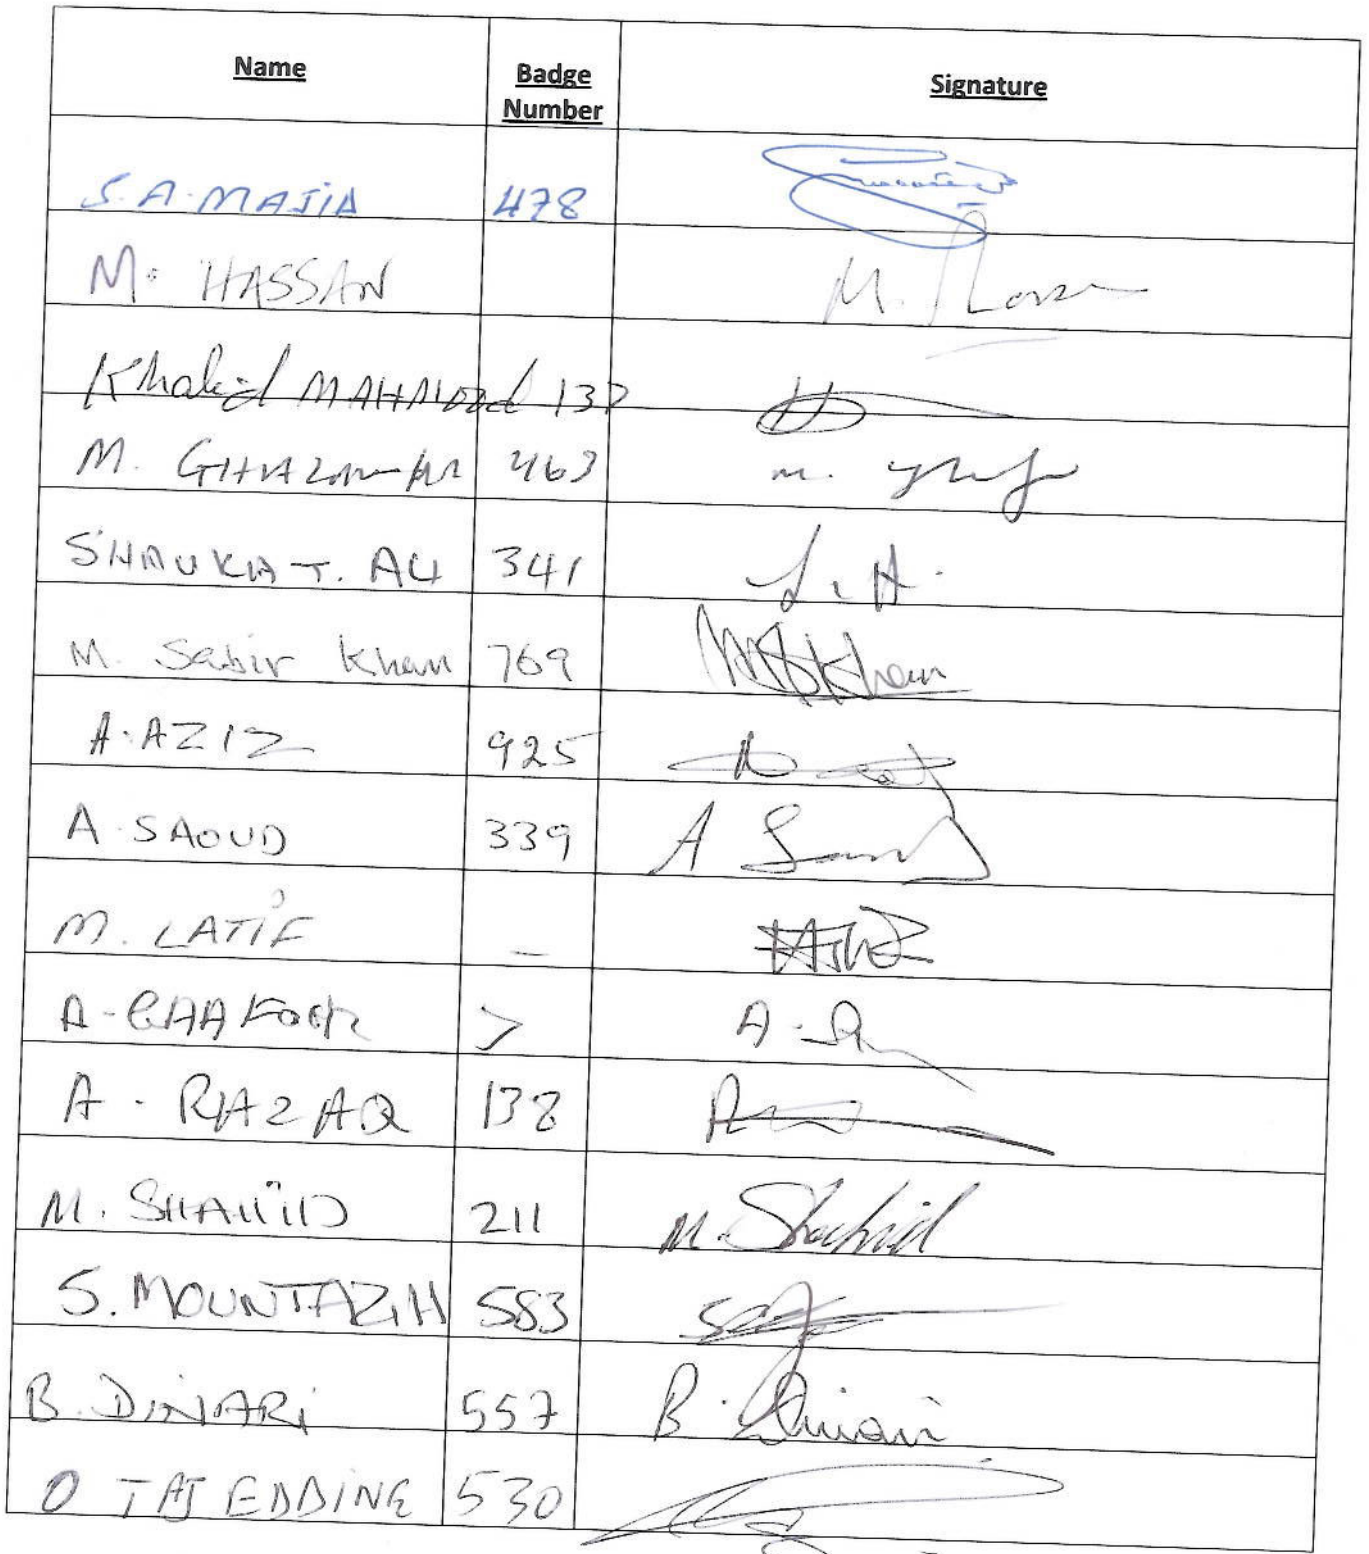 Name Badge Number Signature
S.A.MAJID 478
M. HASSAN M. Hassan
Khalid MAHMOOD 137
M. 463 m.
SHAUKAT. ALI 341 S. A.
M. Sabir Khan 769 MSKhan
A. AZIZ 925
A SAOUD 339 A Saoud
M. LATIF –
A. GHAFOOR A.
A. RAZAQ 138
M. SHAHID 211 M. Shahid
S. MOUNTAZIH 583
B. DINARI 557 B. Dinari
O TAJ EDDINE 530